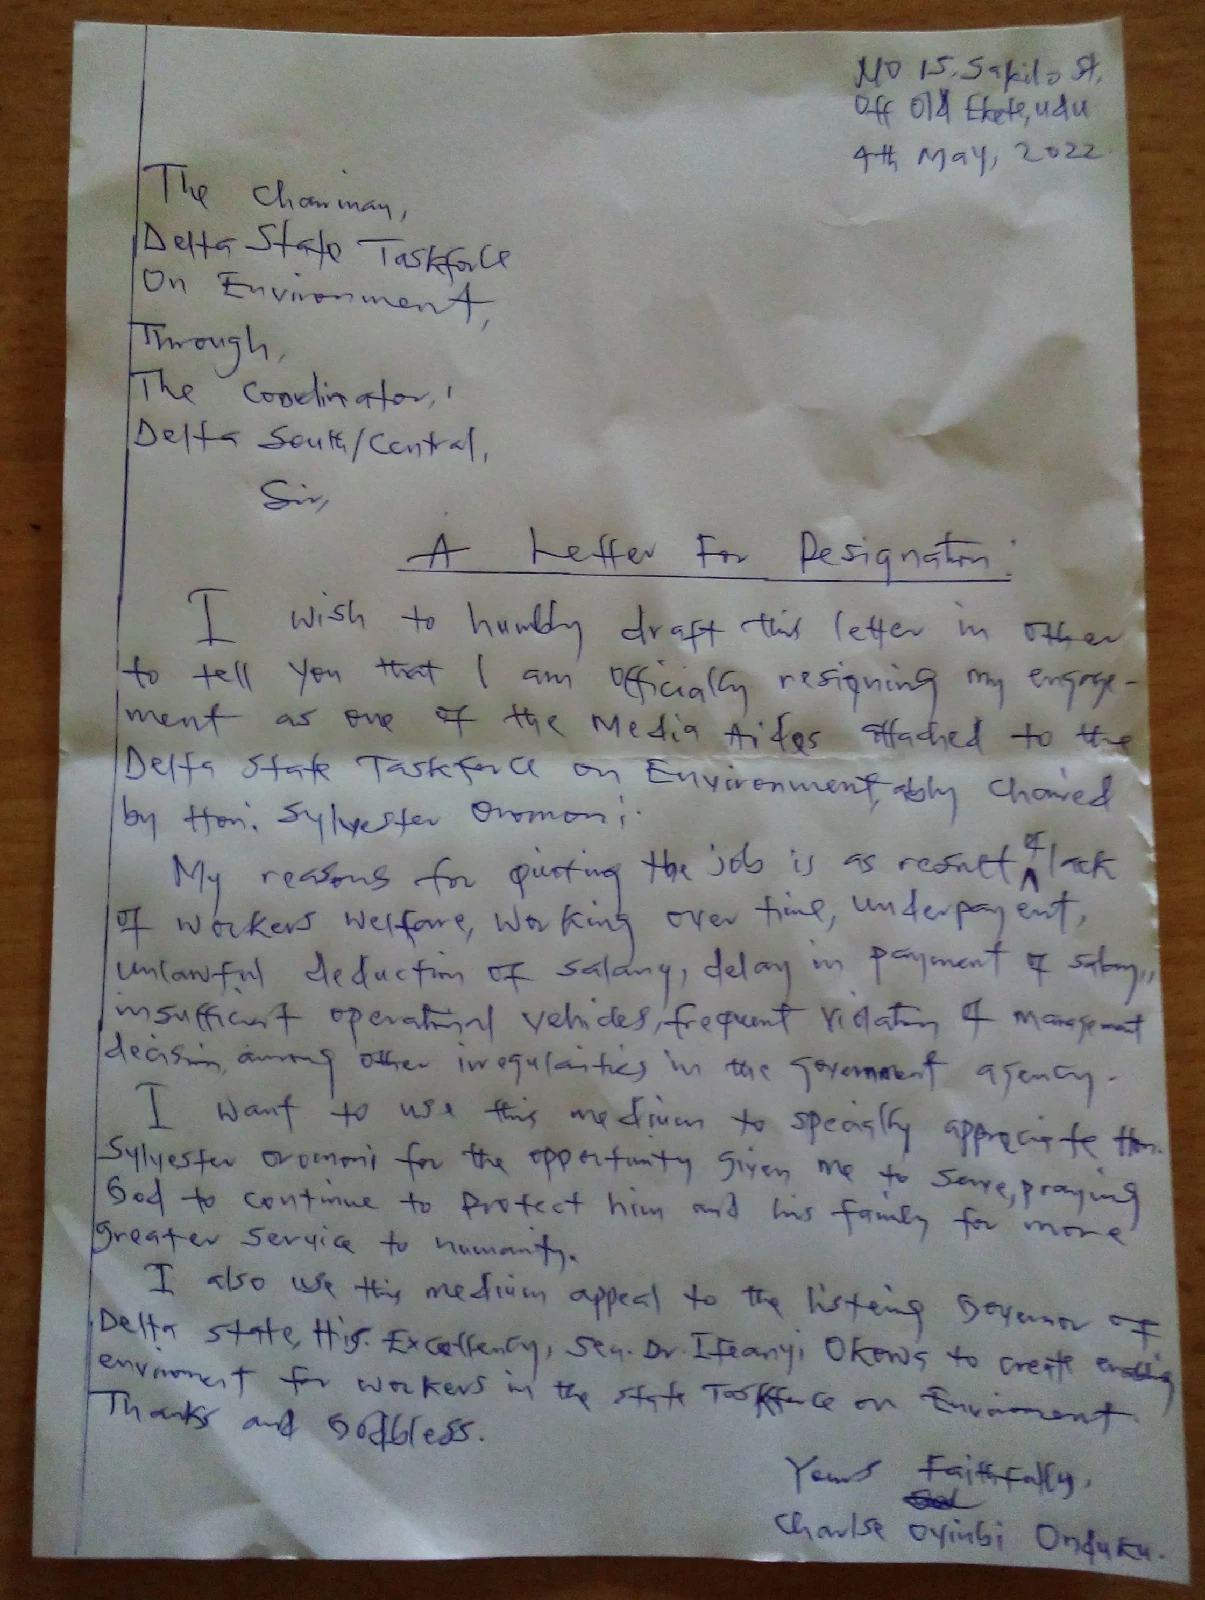 NO 15, Sakilo St,
Off Old Ekete, udu
4th May, 2022
The Chairman,
Delta State Taskforce
On Environment,
Through,
The Coordinator,
Delta South/Central,
Sir,
A Letter For Resignation:
I wish to humbly draft this letter in other
to tell you that I am officially resigning my engage-
ment as one of the Media Aides attached to the
Delta State Taskforce on Environment, ably chaired
by Hon. Sylvester Oromoni.
My reasons for quiting the job is as result of lack
of workers welfare, working over time, underpayent,
unlawful deduction of salary, delay in payment of salary,
insufficient operational vehicles, frequent violation of management
decision, among other irregularities in the government agency.
I want to use this medium to specially appreciate Hon.
Sylvester Oromoni for the opportunity given me to serve, praying
God to continue to protect him and his family for more
greater service to humanity.
I also use this medium appeal to the listening Governor of
Delta state, His. Excellency, Sen. Dr. Ifeanyi Okowa to create
enviroment for workers in the state Taskforce on Enviroment.
Thanks and Godbless.
Yours Faithfully,
Charlse Oyinbi Onduku.